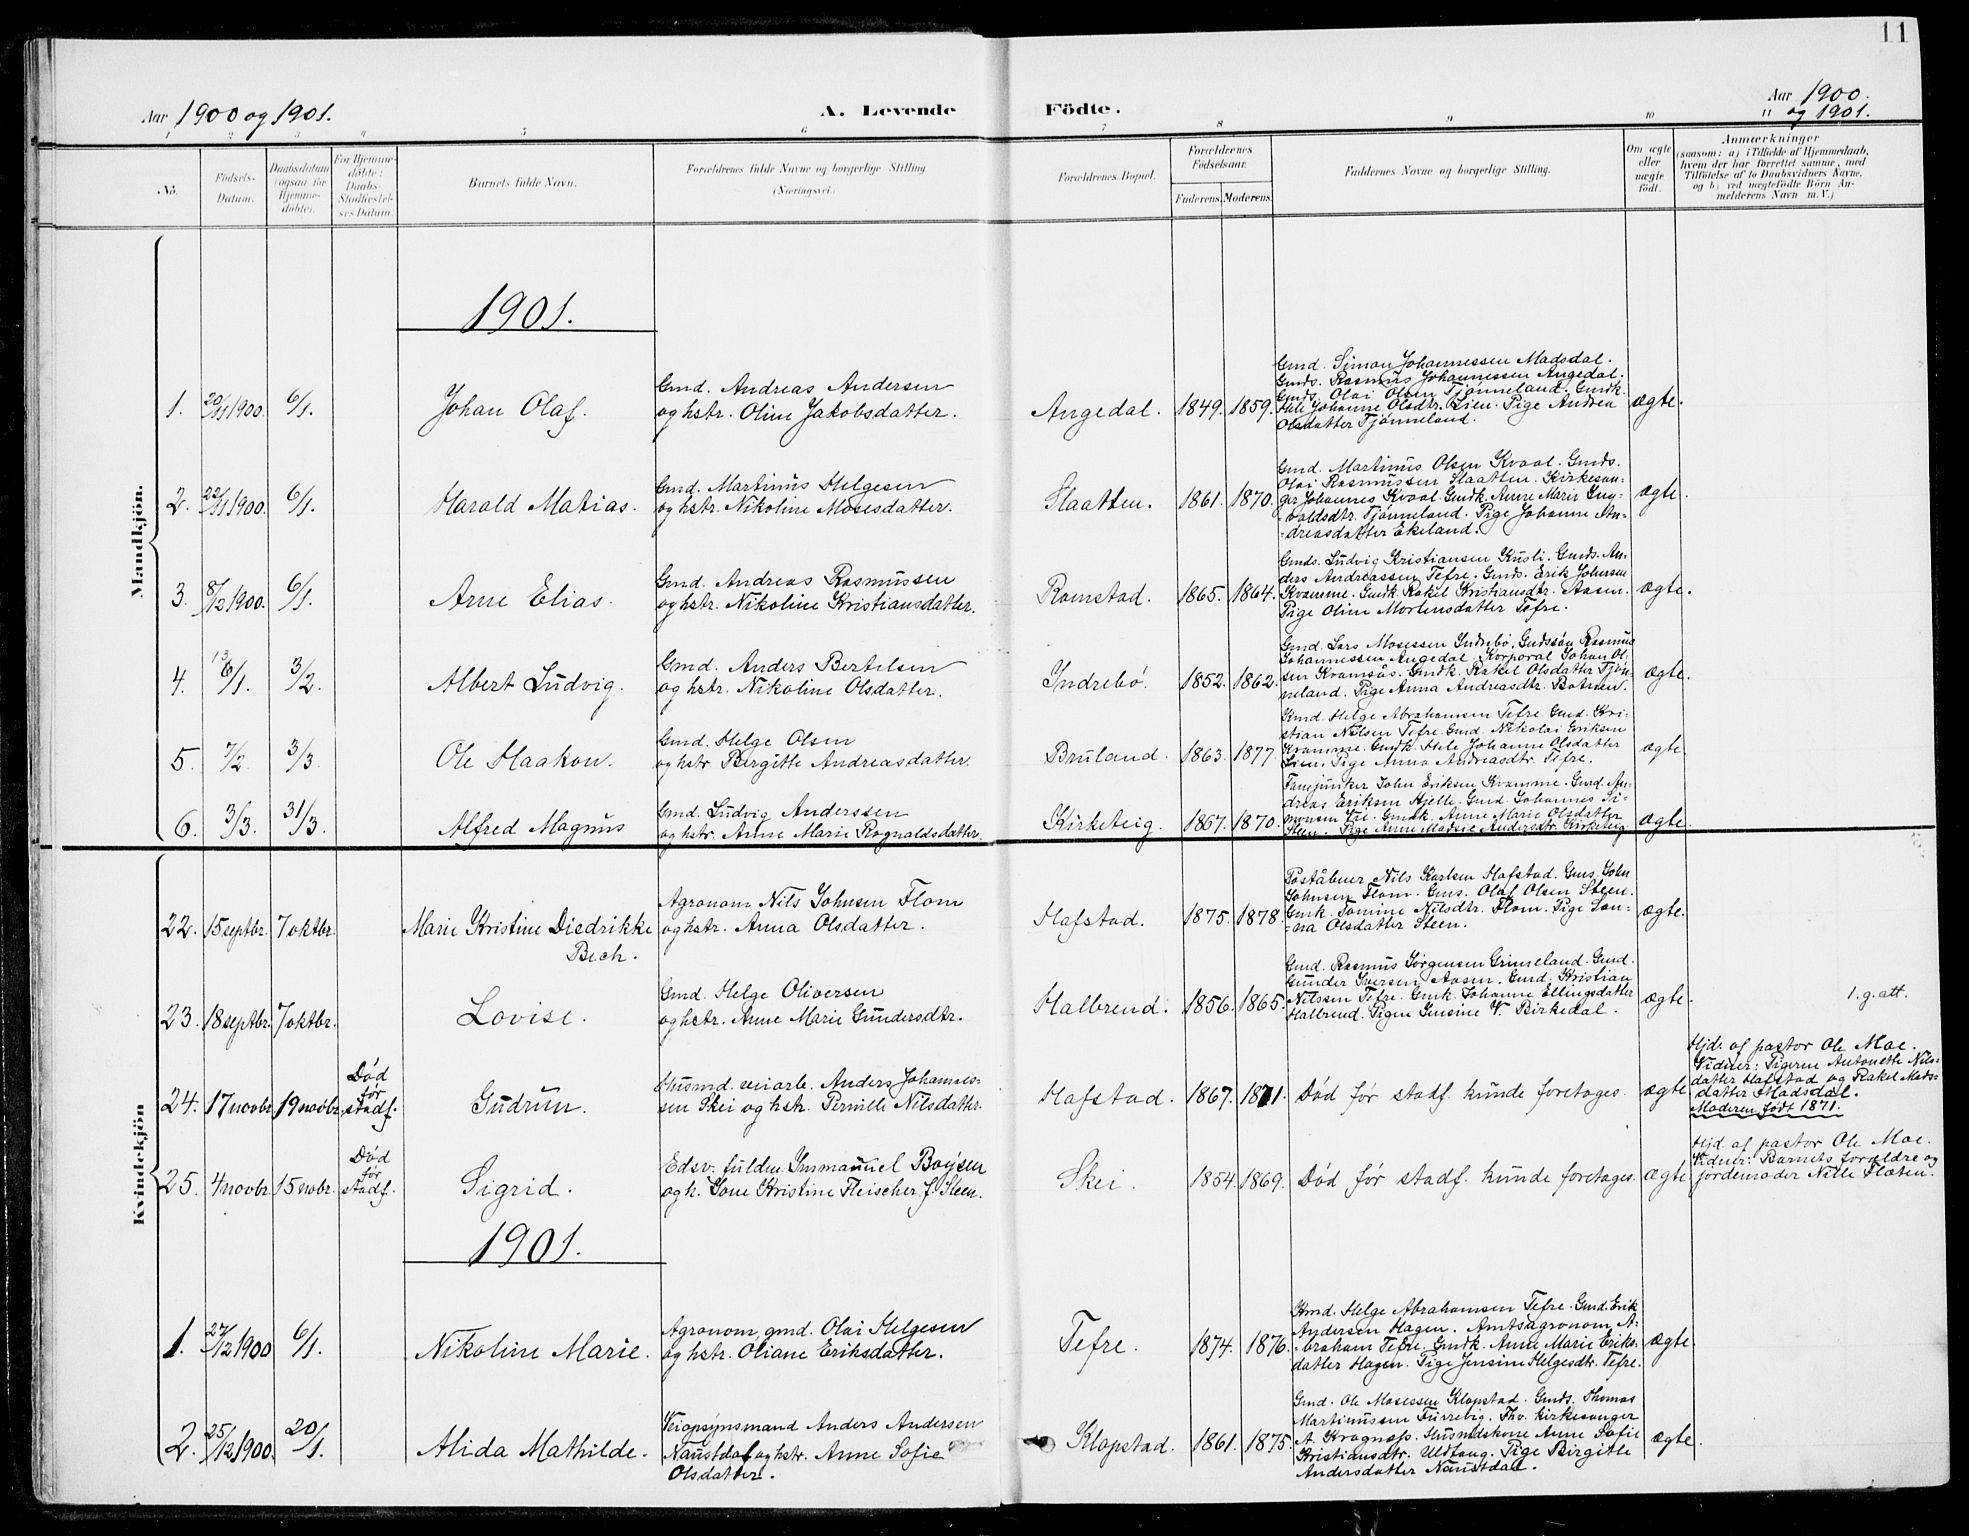 11
Aar 1900 og 1901.
A. Levende
Födte.
Aar 1900.
og 1901.
1 2 3 4 5 6 7 8 9 10 11
No.
Födsels-
Datum.
Daabsdatum
(ogsaa for
Hjemme-
döbte).
For Hjemme-
döbte:
Daabs-
Stadfæstel-
ses Datum.
Barnets fulde Navn.
Forældrenes fulde Navne og borgerlige Stilling
(Næringsvei).
Forældrenes Bopæl.
Forældrenes
Födselsaar.
Faderens.
Moderens.
Faddernes Navne og borgerlige Stilling.
Om ægte
eller
uægte
födt.
Anmærkninger
(saasom: a) i Tilfælde af Hjemmedaab,
hvem der har forrettet samme, med
Tilföielse af to Daabsvidners Navne,
og b) ved uægtefödte Börn An-
melderens Navn m. V.)
Mandkjön.
1901.
1. 20/11 1900. 6/1. Johan Olaf.
Gmd. Andreas Andersen
og hstr. Oline Jakobsdatter.
Angedal. 1849. 1859.
Gmd. Simon Johannessen Madsdal.
Gmds. Rasmus Johannessen Angedal.
Gmds. Olai Olsen Tjønneland. Gmdk.
Hele Johanne Olsdtr. Lien. Pige Andrea
Olsdatter Tjønneland.
ægte.
2. 22/11 1900. 6/1. Harald Matias.
Gmd. Martinus Helgesen
og hstr. Nikoline Mosesdatter.
Slaatten. 1861. 1870.
Gmd. Martinus Olsen Kvaal. Gmds.
Olai Rasmussen Slaatten. Kirkesan-
ger Johannes Kvaal. Gmdk. Anne Marie Gun-
valdsdtr. Tjønneland. Pige Johanne An-
dreasdatter Ekeland.
ægte.
3. 8/12 1900. 6/1. Arne Elias.
Gmd. Andreas Rasmussen
og hstr. Nikoline Kristiansdatter.
Ramstad. 1865. 1864.
Gmds. Ludvig Kristiansen Kusli. Gmds. An-
ders Andreassen Tefre. Gmds. Erik Johnsen
Kvamme. Gmdk. Rakel Kristiansdtr. Aasen.
Pige Oline Mortensdatter Tefre.
ægte.
4. 13 6/1. 3/2. Albert Ludvig.
Gmd. Anders Bertelsen
og hstr. Nikoline Olsdatter.
Indrebø. 1852. 1862.
Gmd. Lars Mosessen Indrebø. Gmdssøn Rasmus
Johannessen Angedal. Korporal Johan Ol-
sen Kvamsås. Gmdk. Rakel Olsdatter Tjøn-
neland. Pige Anna Andreasdtr. Botnen.
ægte.
5. 7/2. 3/3. Ole Haakon.
Gmd. Helge Olsen
og hstr. Birgitte Andreasdatter.
Bruland. 1863. 1877.
Kmd. Helge Abrahamsen Tefre. Gmd. Kri-
stian Nilsen Tefre. Gmd. Nikolai Eriksen
Kvamme. Gmdk. Hele Johanne Olsdatter
Lien. Pige Anna Andreasdtr. Tefre.
ægte.
6. 3/3. 31/3. Alfred Magnus
Gmd. Ludvig Anderssen
og hstr. Anne Marie Rognaldsdatter.
Kirketeig. 1867. 1870.
Fanejunker John Eriksen Kvamme. Gmd. An-
dreas Eriksen Hjelle. Gmd. Johannes Si-
monsen Vie. Gmdk. Anne Marie Olsdatter
Steen. Pige Anne Madsie Andersdtr. Kirketeig.
ægte.
Kvindekjön
22. 15 septbr. 7 oktbr. Marie Kristine Diedrikke
Bech.
Agronom Nils Johnsen Flom
og hstr. Anna Olsdatter.
Hafstad. 1875. 1878.
Poståbner Nils Karlsen Hafstad. Gms. John
Johnsen Flom. Gms. Olaf Olsen Steen.
Gmk. Tomine Nilsdtr. Flom. Pige San-
na Olsdatter Steen.
ægte.
23. 18 septbr. 7 oktbr. Lovise.
Gmd. Helge Oliversen
og hstr. Anne Marie Gundersdtr.
Halbrend. 1856. 1865.
Gmd. Rasmus Jørgensen Grimeland. Gmd.
Gunder Iversen Aasen. Gmd. Kristian
Nilssen Tefre. Gmk. Johanne Ellingsdatter
Halbrend. Pigen Jensine V. Birkedal.
ægte.
1. g. att.
24. 17 novbr. 19 novbr.
Død
før
stadf.
Gudrun.
Husmd. veiarb. Anders Johannes-
sen Skei og hstr. Pernille Nilsdatter.
Hafstad. 1867. 1871.
Død før stadf. kunde foretages.
ægte
Hjd. af pastor Ole Moe.
Vidner: Pigerne Antonette Nils-
datter Hafstad og Rakel Mads-
datter Madsdal.
Moderen født 1871.
25. 4 novbr. 15 nobr.
Død
før
stadf.
Sigrid.
Edsv. fuldm. Immanuel Boysen
og h. Lone Kristine Fleischer f. Steen.
Skei. 1854. 1869.
Død før stadf. kunde foretages.
ægte
Hjd. af pastor Ole Moe.
Vidner: Barnets forældre og
jordemoder Nille Flaten.
1901.
1. 27/12 1900 6/1. Nikoline Marie.
Agronom, gmd. Olai Helgesen
og hstr. Oliane Eriksdatter.
Tefre. 1874. 1876.
Kmd. Helge Abrahamsen Tefre. Gmd. Erik
Andersen Hagen. Amtsagronom A-
braham Tefre. Gmdk. Anne Marie Eriks-
datter Hagen. Pige Jensine Helgesdtr. Tefre.
ægte.
2. 25/12 1900. 20/1. Alida Mathilde.
Veiopsynsmand Anders Andersen
Naustdal og hstr. Anne Sofie
Olsdatter.
Klopstad. 1861. 1875.
Gmd. Ole Mosessen Klopstad. Gmds. Thomas
Martinussen Furrebig. Fhv. kirkesanger
A. Kragnæs. Husmdskone Anne Sofie
Kristiansdtr. Uldfang. Pige Birgitte
Andersdatter Naustdal.
ægte.